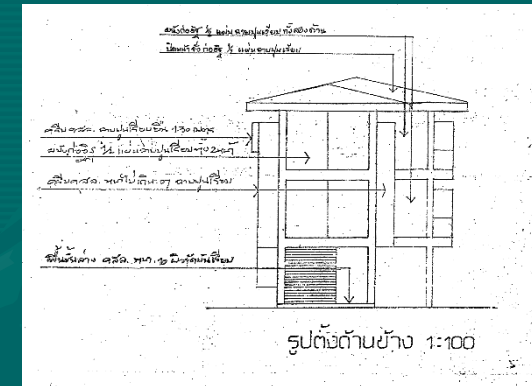 ผนังก่ออิฐ ½ แผ่นฉาบปูนเรียบทั้งสองด้าน
ก่ออิฐ ½ แผ่นฉาบปูนเรียบ
ครีบ คสล. ฉาบปูนเรียบยื่น
ผนังก่ออิฐ ½ แผ่นฉาบปูนเรียบ
ครีบ คสล. ฉาบปูนเรียบ
พื้นชั้นล่าง คสล. หนา ผิวขัดมันเรียบ
รูปตั้งด้านข้าง 1:100